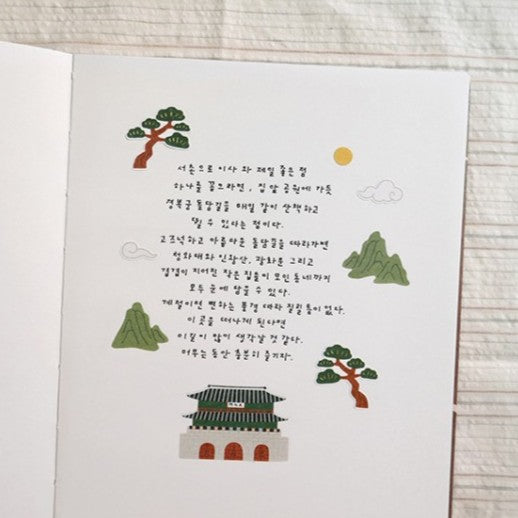 서촌으로 이사 와 제일 좋은 점
하나를 꼽으라면, 집 앞 공원에 가듯
경복궁 돌담길을 매일 같이 산책하고
뛸 수 있다는 점이다.
고즈넉하고 아름다운 돌담길을 따라가면
청와대와 인왕산, 광화문 그리고
겹겹이 지어진 작은 집들이 모인 동네까지
모두 눈에 담을 수 있다.
계절이면 변하는 풍경 때라 질릴 틈이 없다.
이 곳을 떠나게 된다면
이 길이 많이 생각날 것 같다.
머무는 동안 충분히 즐기자.